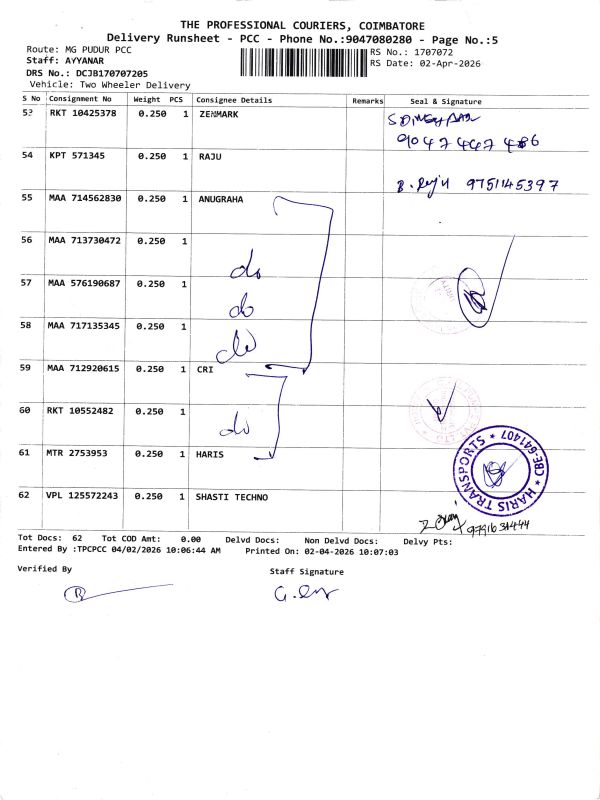 THE PROFESSIONAL COURIERS, COIMBATORE
Delivery Runsheet - PCC - Phone No.:9047080280 - Page No.:5
Route: MG PUDUR PCC
RS No.: 1707072
Staff: AYYANAR
RS Date: 02-Apr-2026
DRS No.: DCJB170707205
Vehicle: Two Wheeler Delivery
S No Consignment No Weight PCS Consignee Details Remarks Seal & Signature
53 RKT 10425378 0.250 1 ZENMARK
9047447486
54 KPT 571345 0.250 1 RAJU
B. Raju 9751145397
55 MAA 714562830 0.250 1 ANUGRAHA
56 MAA 713730472 0.250 1
do
57 MAA 576190687 0.250 1
do
58 MAA 717135345 0.250 1
do
59 MAA 712920615 0.250 1 CRI
60 RKT 10552482 0.250 1
do
61 MTR 2753953 0.250 1 HARIS
HARIS TRANSPORTS * CBE-641407 *
62 VPL 125572243 0.250 1 SHASTI TECHNO
Tot Docs: 62 Tot COD Amt: 0.00 Delvd Docs: Non Delvd Docs: Delvy Pts:
Entered By :TPCPCC 04/02/2026 10:06:44 AM Printed On: 02-04-2026 10:07:03
Verified By
Staff Signature